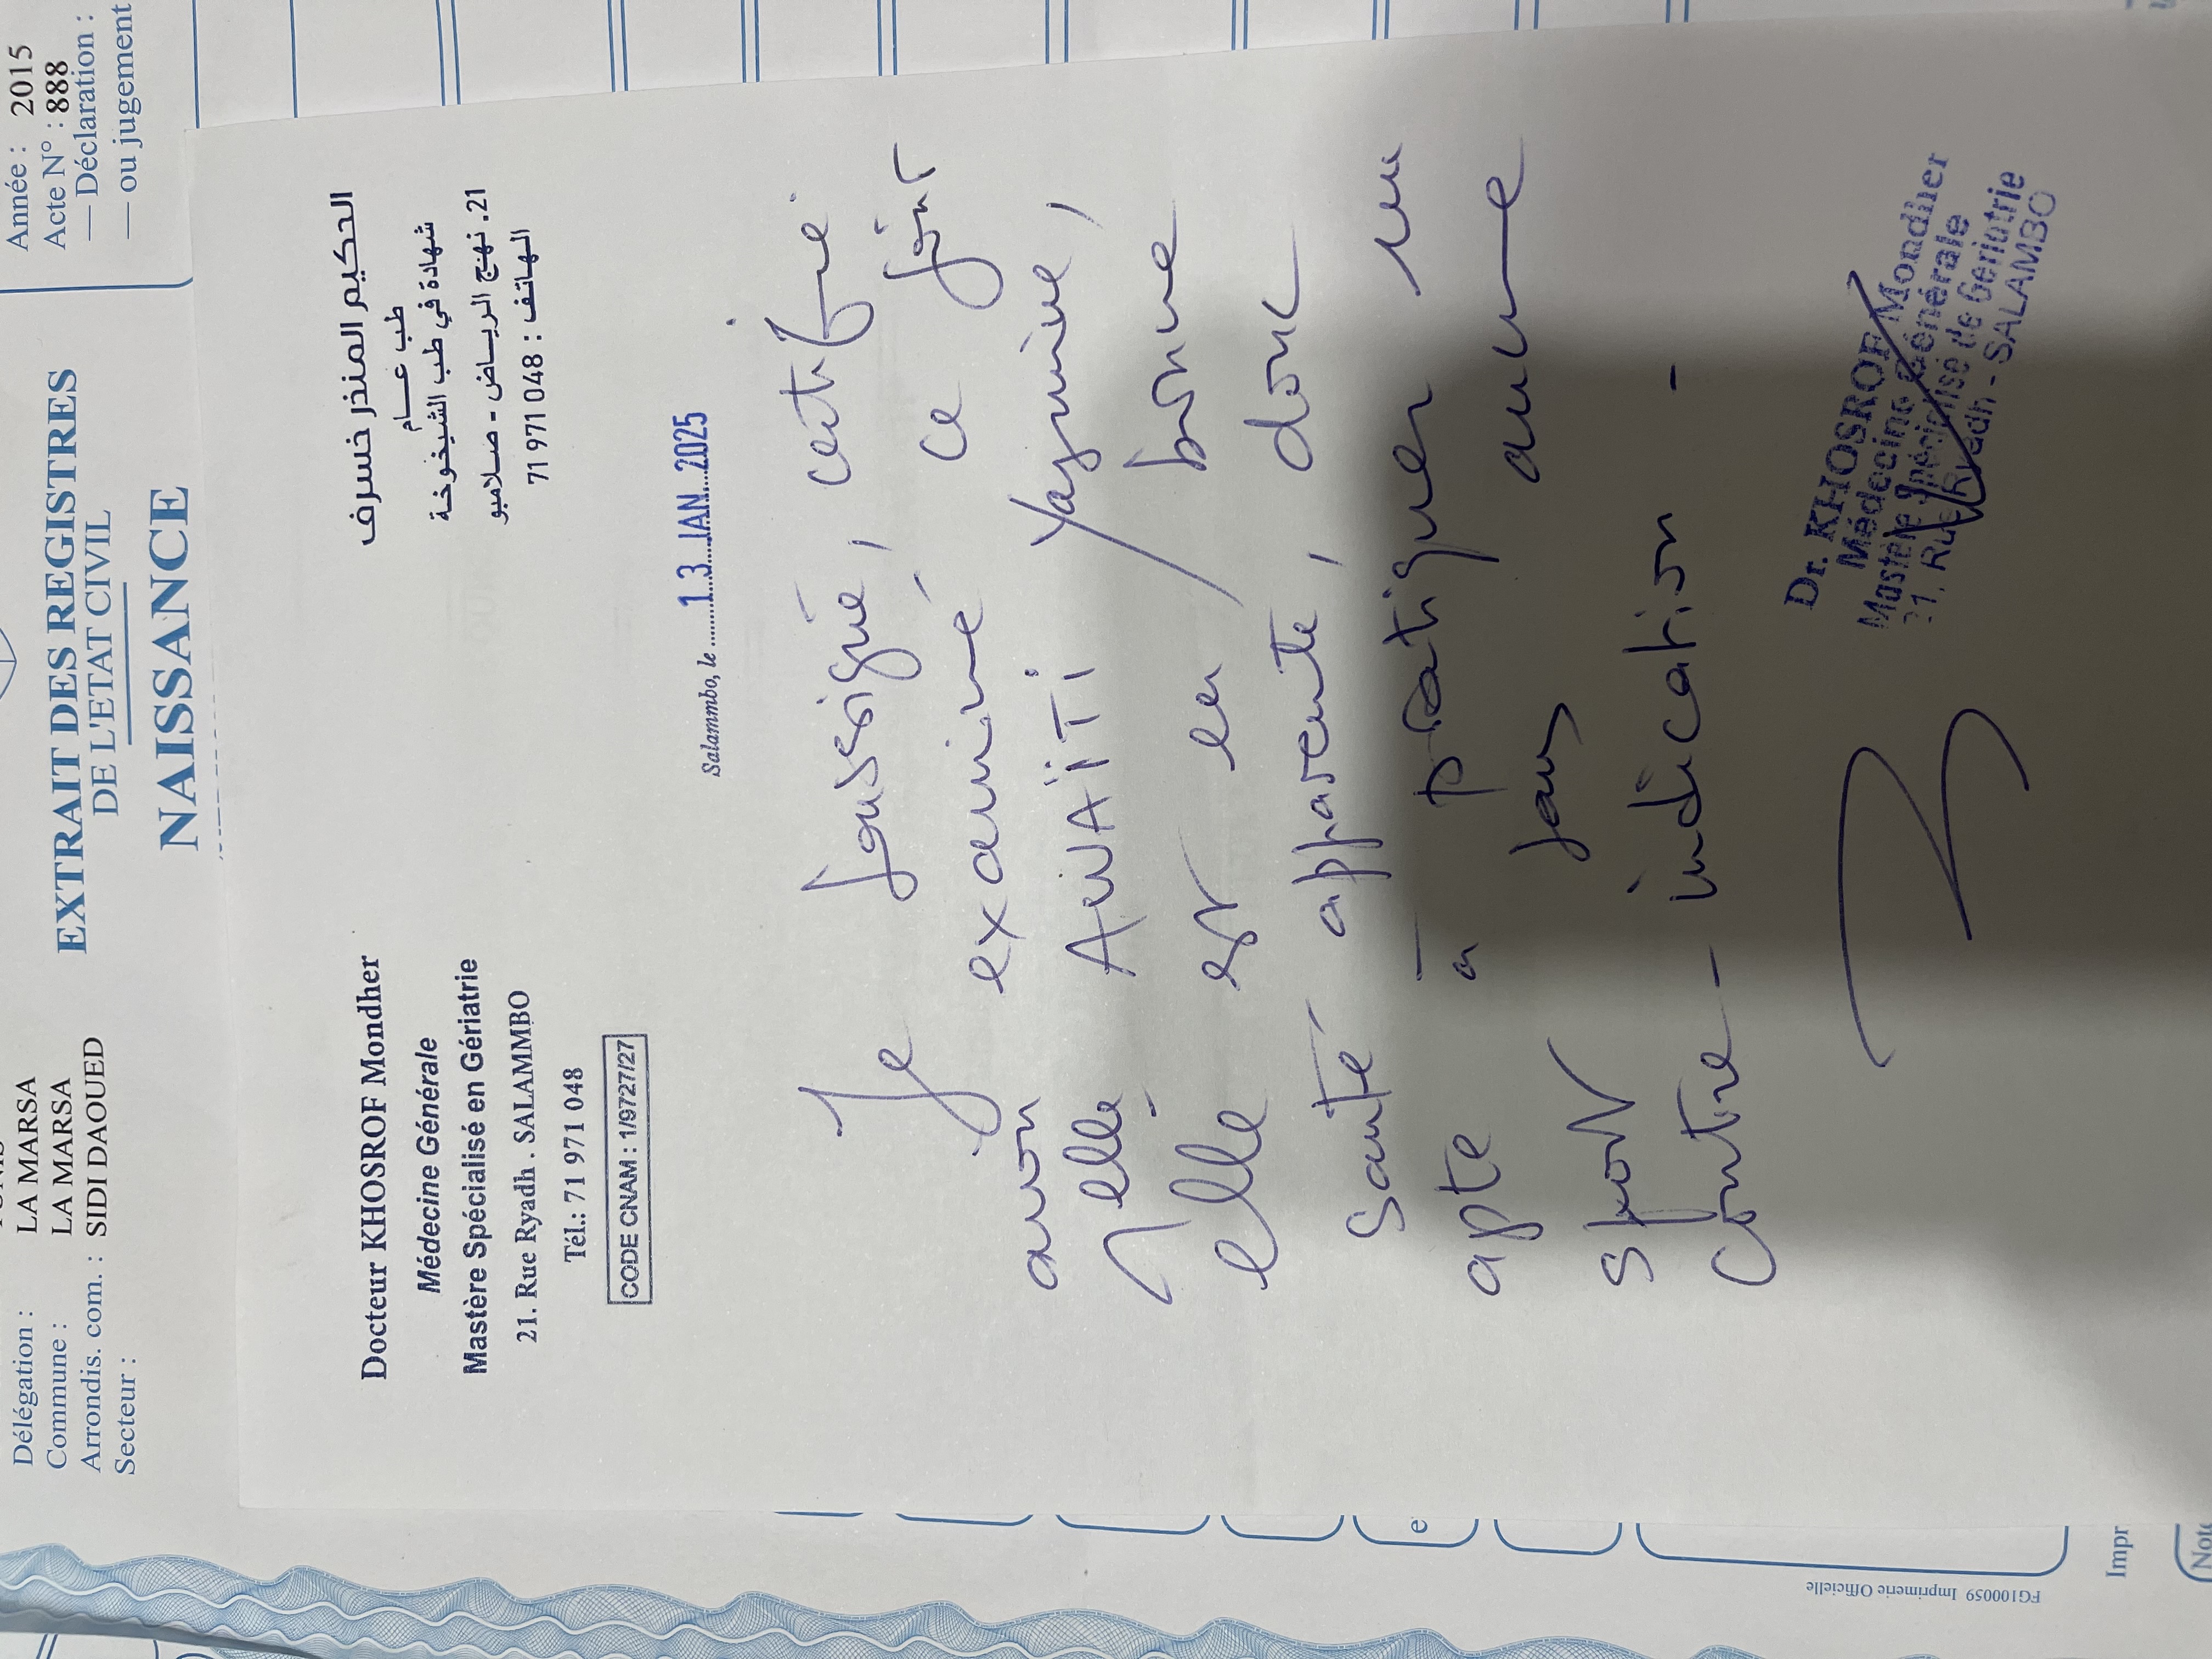 Année : 2015
Acte N° : 888
— Déclaration :
— ou jugement
EXTRAIT DES REGISTRES
DE L'ETAT CIVIL
NAISSANCE
Délégation : LA MARSA
Commune : LA MARSA
Arrondis. com. : SIDI DAOUED
Secteur :
Docteur KHOSROF Mondher
Médecine Générale
Mastère Spécialisé en Gériatrie
21. Rue Ryadh . SALAMMBO
Tél.: 71 971 048
CODE CNAM : 1/9727/27
الحكيم المنذر خسرف
طب عـــام
شهادة في طب الشيخوخة
21. نهج الريـــاض - صـلامبو
الهاتف : 048 971 71
Salammbo, le ........ 1 3 JAN. 2025
Je soussigné, certifie
avoir examiné ce jour
Melle AWAÏTI Yasmine,
elle est en bonne
santé apparente, donc
apte à pratiquer un
sport sans aucune
contre-indication -
Dr. KHOSROF Mondher
Médecine Générale
Mastère Spécialisé de Geriatrie
21, Rue Ryadh - SALAMBO
FG100059 Imprimerie Officielle
Impr
Note